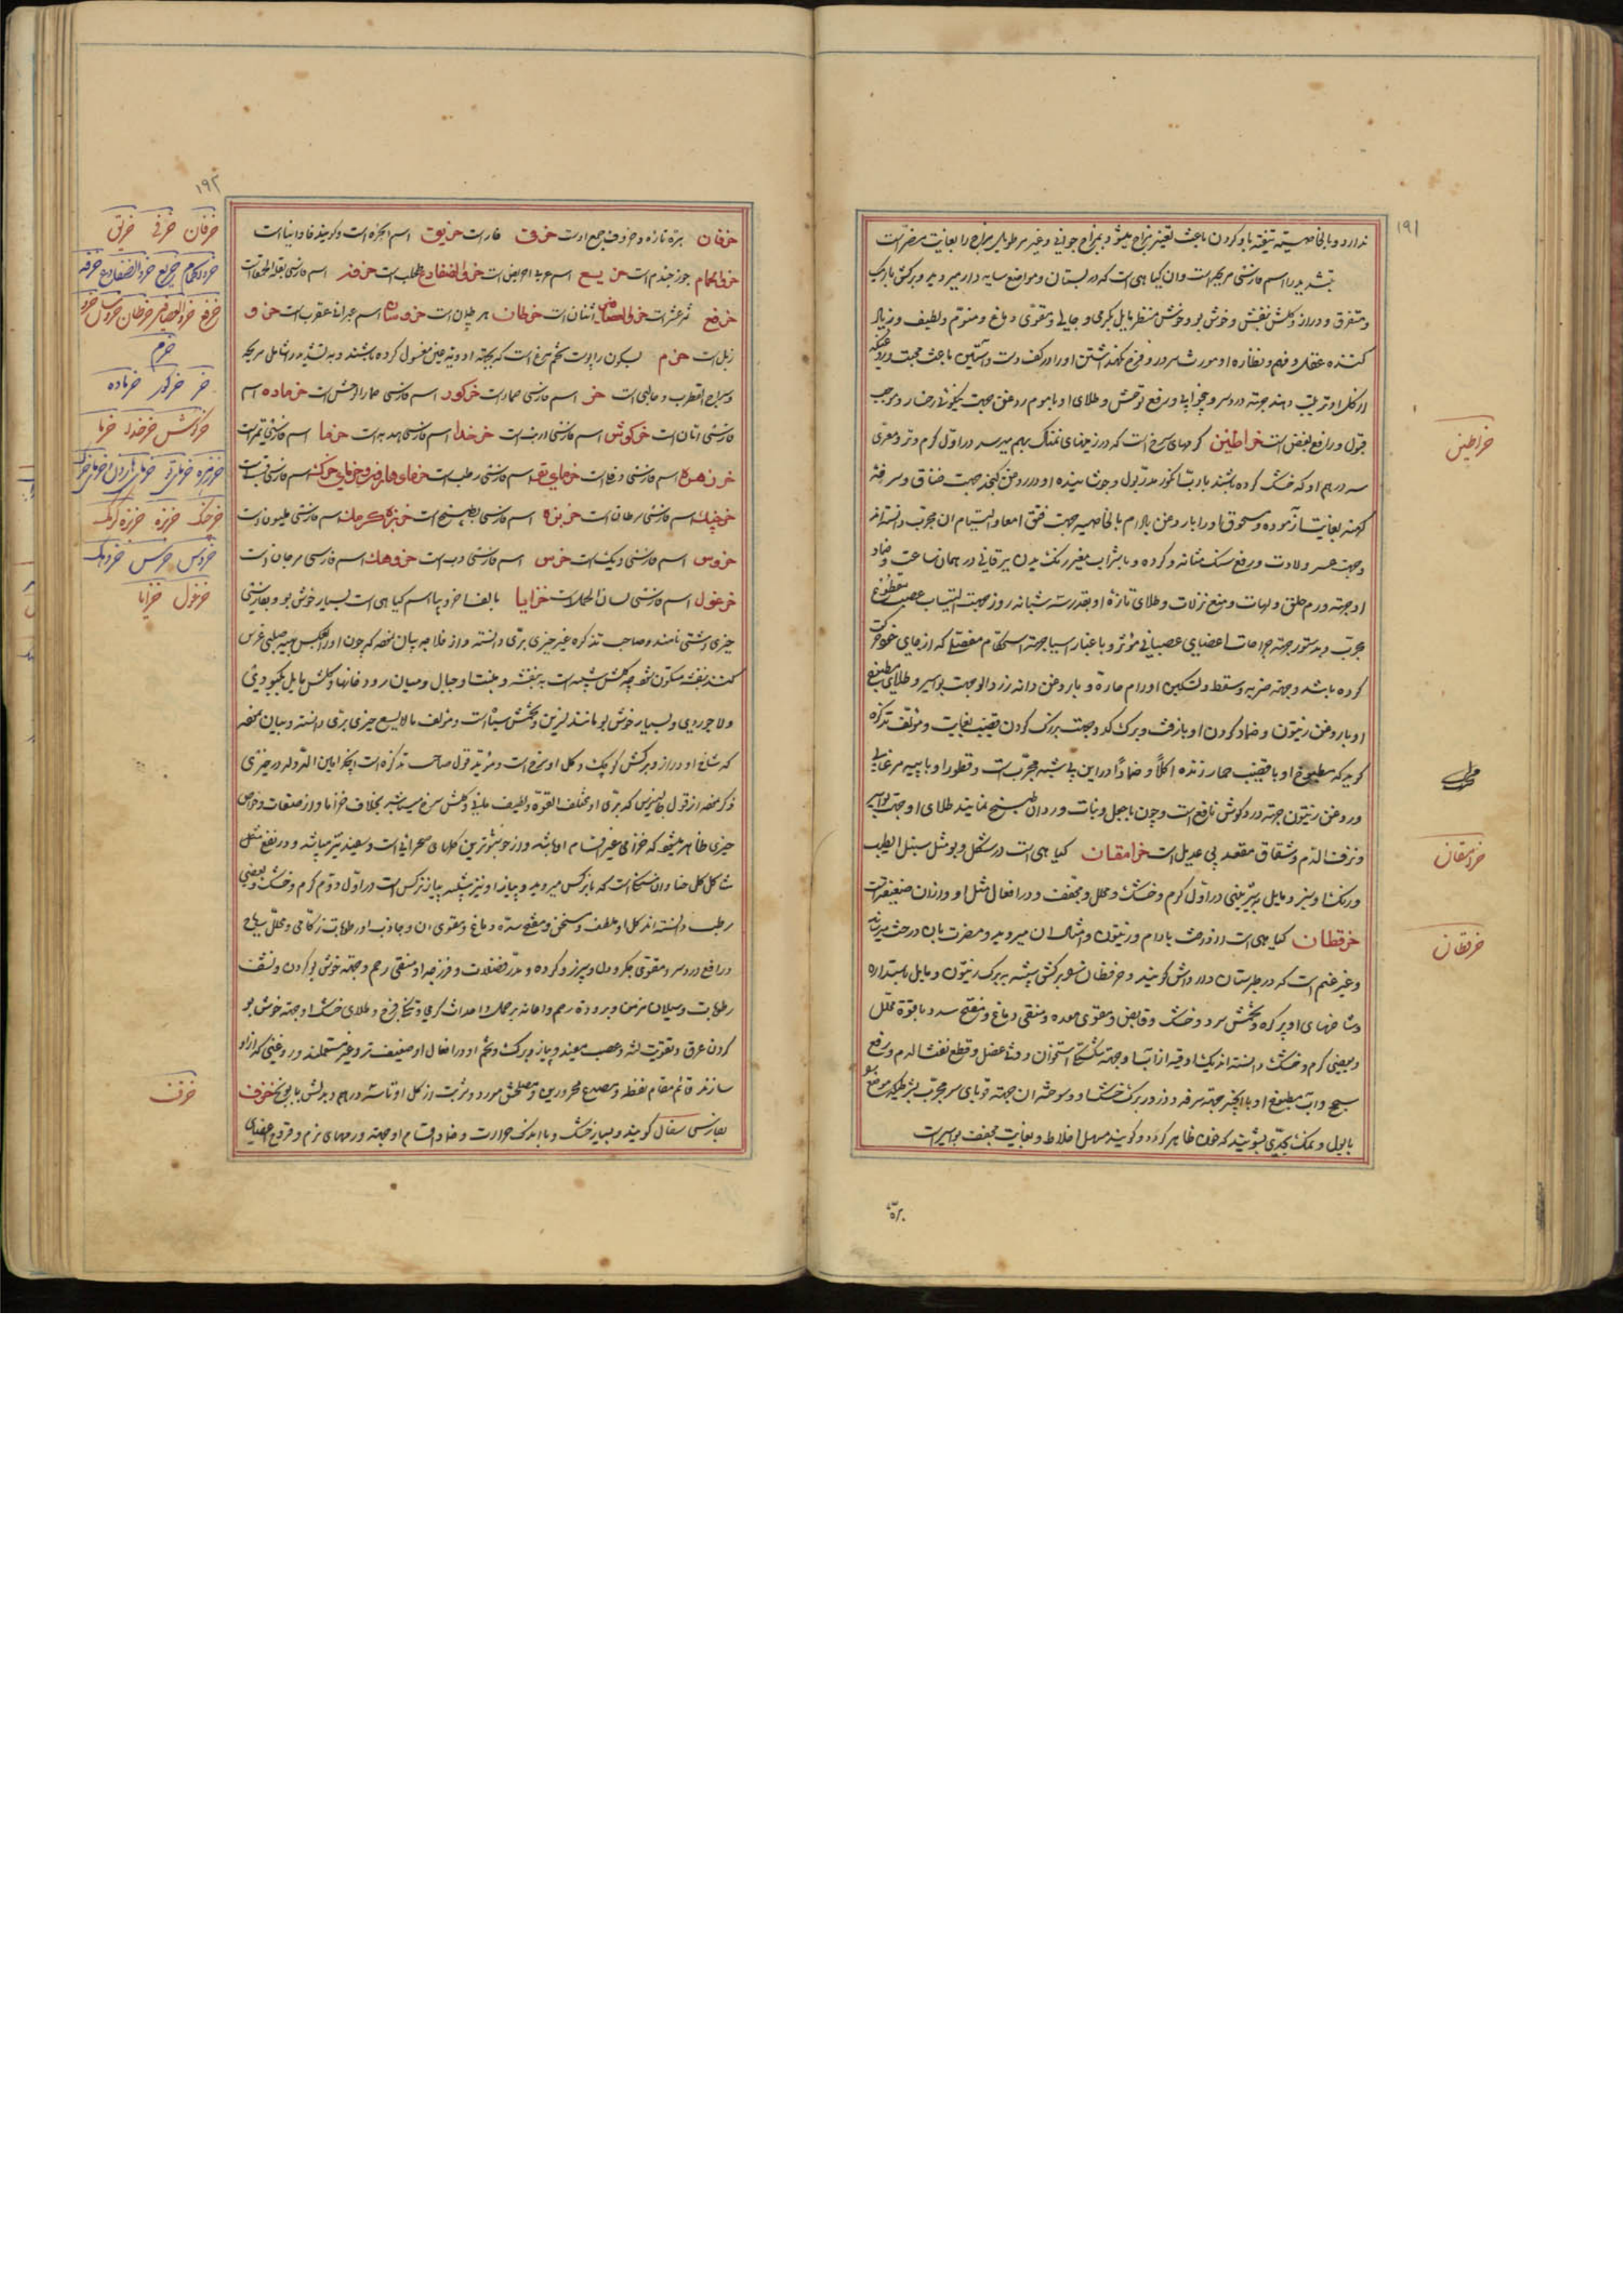 ۱۹۱
ندارد و بالخاصیة تیغه یاد کردن باعث تغییر مزاج میشود و بمزاج جوانی و غیر مرطوبی مزاج را بغایت مضر است
بتشدید را اسم فارسی مریحه است و ان کیاهی است که در بستان و مواضع سایه دار میروید و برکش باریک
و متفرق و دراز و کلش بنفش و خوش بو و خوش منظر مایل بکرمی و جالی و مقوی دماغ و منوم و لطیف و زیاد
کننده عقل و فهم و نظاره او مورث سرور و فرح و نکهداشتن او در کف دست و آستین باعث محبت
از کل او ترتیب دهند جهته درد سر و بیخوابی و رفع توحش و طلای او با موم روغن جهت نیکوئی رخسار و موجب
قبول و رافع بغض است خراطین کرمهای سرخ است که در زمینهای نمناک بهم میرسد در اول کرم و تر و مغری
سه درهم او که خشک کرده باشند با رب انکور مدر بول و جوشانیده او در روغن کنجد جهت خناق و سرفه
کهنه بغایت آزموده و مسحوق او را با روغن بادام بالخاصیه جهت فتق امعا و التیام ان مجرب دانسته‌اند
و جهت عسر ولادت و رفع سنک مثانه و کرده و با شراب مغیر رنک بدن یرقانی در همان ساعت و ضماد
او جهته ورم حلق و لهات و منع نزلات و طلای تازه او بقدر سه شبانه روز جهته التیاب عصب مقطوع
مجرب و بدستور جهته جراحات اعضای عصبانی مؤثر و با غبار اسیا جهته استحکام مفصلی که از جای خود حرکت
کرده باشد و جهته ضربه و سقطه و تسکین اورام حاره و با روغن دانه زردالو جهت بواسیر و طلای مطبوخ
او با روغن زیتون و ضماد کردن او با زفت و برک کدو جهت بزرک کردن قضیب بغایت و مؤلف تذکره
کوید که مطبوخ او با قضیب حمار زنده اکلاً و ضماداً در این باب مجرب است و قطور او با پیه مرغابی
و روغن زیتون جهته درد کوش نافع است و چون با جعل و بنات وردان طبخ نمایند طلای او جهت بواسیر
و نزف الدم و شقاق مقعد بی عدیل است خرامقان کیاهی است در شکل و بو مثل سنبل الطیب
و رنک او سبز و مایل بزرینی در اول کرم و خشک و محلل و مجفف و در افعال مثل او و ازان ضعیفتر است
خرقطان کیاهی است در زرخت بادام و زیتون و امثال ان میروید و مضرت بان درخت میرساند
و غیر غنم است که در طبرستان دار داش کویند و خرقطان نیز برکش شبیه به برک زیتون و مایل باستداره
و شاخهای او پر کره و تخمش سرد و خشک و قابض و مقوی معده و منقی دماغ و مفتح سدد با قوة محلل
و بعضی کرم و خشک دانسته‌اند یک اوقیه از آب او جهته شکستکی استخوان و وثاء عضل و قطع نفث الدم و رفع
سحج و اب مطبوخ او با انجیر جهته سرفه و ذرور برک خشک او و سوخته ان جهته قوبای سر مجرب بشرطیکه موضع
با بول و نمک بجدی بشویند که خون ظاهر کردد و کویند مسهل اخلاط و بغایت مجفف بواسیر است
بره
خراطین
خرامقان
خرقطان
۱۹۲
خرفان بره تازه و خروف جمع اوست خرفی فار است خریق اسم انجره است و کویند فاوانیا است
خرؤالحمام جوز جندم است خریع اسم عربی احریض است خرؤالضفادع طحلب است خرفه اسم فارسی بقلة الحمقا است
خرفع ثمر عشر است خرؤالعصافیر اشنان است خرطان هرطمان است خروسان اسم عبرانی عقرب است خرو
زبل است خرم بسکون را پوست تخم مرغ است که بجهته ادویه عین مغسول کرده باشند و به تشدید را شامل مریحه
و سراج القطرب و حالبی است خر اسم فارسی حمار است خرکور اسم فارسی حمار الوحش است خرماده اسم
فارسی اتان است خرکوش اسم فارسی ارنب است خرخدا اسم فارسی هدبه است خرما اسم فارسی تمر است
خرزهره اسم فارسی دفلی است خرمای تر اسم فارسی رطب است خرمای هارون و خرمای خرک اسم فارسی قسب است
خرچنک اسم فارسی سرطان است خربزه اسم فارسی بطیخ است خربزه کرمک اسم فارسی ملیون است
خروس اسم فارسی دیک است خرس اسم فارسی دب است خروهک اسم فارسی مرجان است
خرغول اسم فارسی لسان الحمل است خزایا بالف اخر و بها اسم کیاهی است بسیار خوش بو و بفارسی
خیری دشتی نامند و صاحب تذکره غیر خیری بری دانسته و از فلاحه بیان نموده که چون او را بعکس صلیبی غرس
کنند بنفشه متکون شود و کلش شبیه است به بنفشه و منبت او جبال و میان رودخانها و کلش مایل بکبودی
و لاجوردی و بسیار خوش بو مانند نسرین و تخمش سیاه است و مؤلف مالایسع خیری بری دانسته و بیان نموده
که شاخ او دراز و برکش کوچک و کل او سرخ است و مؤید قول صاحب تذکره است اینکه ابن التولد در خیری
ذکر نموده از قول جالینوس که بری او مختلف القوة و لطیف مایی و کلش سرخ میباشد بخلاف خزاما و از صفات و خواص
خیری ظاهر میشود که خزامی غیر اقسام او باشد و از خوشبوترین کلهای صحرائی است و سفید نیز میباشد و در نفع مثل
شاکل کل حنا و ان نسخه است که با نرکس میروید و پیاز او نیز شبیه به پیاز نرکس است در اول دویم کرم و خشک و بعضی
رطب دانسته‌اند کل او ملطف و مسخن و مفتح سده دماغ و مقوی ان و جاذب او رطوبات زکامی و محلل ریاح
و رافع درد سر و مقوی جکر و دل و سپرز و کرده و مدر فضلات و فرزجه او منقی رحم و جهته خوش بو کردن و نشف
رطوبات و سیلان مزمن و برودة رحم و اعانه بر حمل و احداث کرمی و تنکی فرج و طلای خشک او جهته خوش بو
کردن عرق و تقویت لثه و عصب مفید و پیاز و برک و تخم او در افعال او ضعیفتر و غیر مستعملند و روغنی که از او
سازند قائم مقام نفط و مصدع محرورین و مصلحش مورد و شربت از کل او تا سه درهم و بدلش بابونج خزف
بفارسی سفال کویند و بسیار خشک و با اندک حرارت و ضماد اقسام او جهته ورمهای نرم و قروح اعضای
خرفان خرفی خریق
خرؤالحمام خریع خرؤالضفادع خرفه
خرفع خرؤالعصافیر خرطان خروسان خرو
خرم
خر خرکور خرماده
خرکوش خرخدا خرما
خرزهره خرمای تر خرمای هارون خرمای خرک
خرچنک خربزه خربزه کرمک
خروس خرس خروهک
خرغول خزایا
خزف